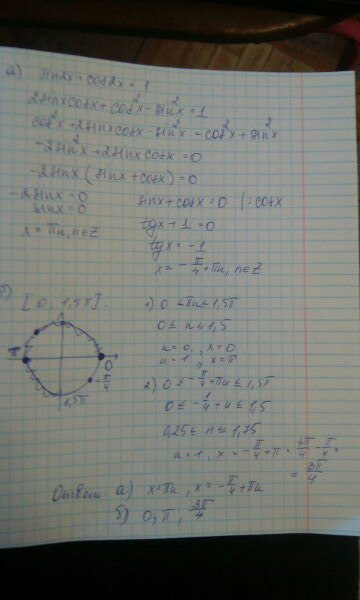 а) sin2x + cos2x = 1
2sinxcosx + cos²x - sin²x = 1
cos²x + 2sinxcosx - sin²x = cos²x + sin²x
-2sin²x + 2sinxcosx = 0
-2sinx (sinx + cosx) = 0
-2sinx = 0 sinx + cosx = 0 | : cosx
sinx = 0 tgx + 1 = 0
x = πn, n∈Z tgx = -1
x = -π/4 + πn, n∈Z
б) [0, 1,5π].
1) 0 ≤ πn ≤ 1,5π
0 ≤ n ≤ 1,5
n = 0, x = 0
n = 1, x = π
π 0 -π/4 1,5π
2) 0 ≤ -π/4 + πn ≤ 1,5π
0 ≤ -1/4 + n ≤ 1,5
0,25 ≤ n ≤ 1,75
n = 1, x = -π/4 + π = 4π/4 - π/4 =
= 3π/4
Ответ: а) x = πn, x = -π/4 + πn
б) 0, π, 3π/4